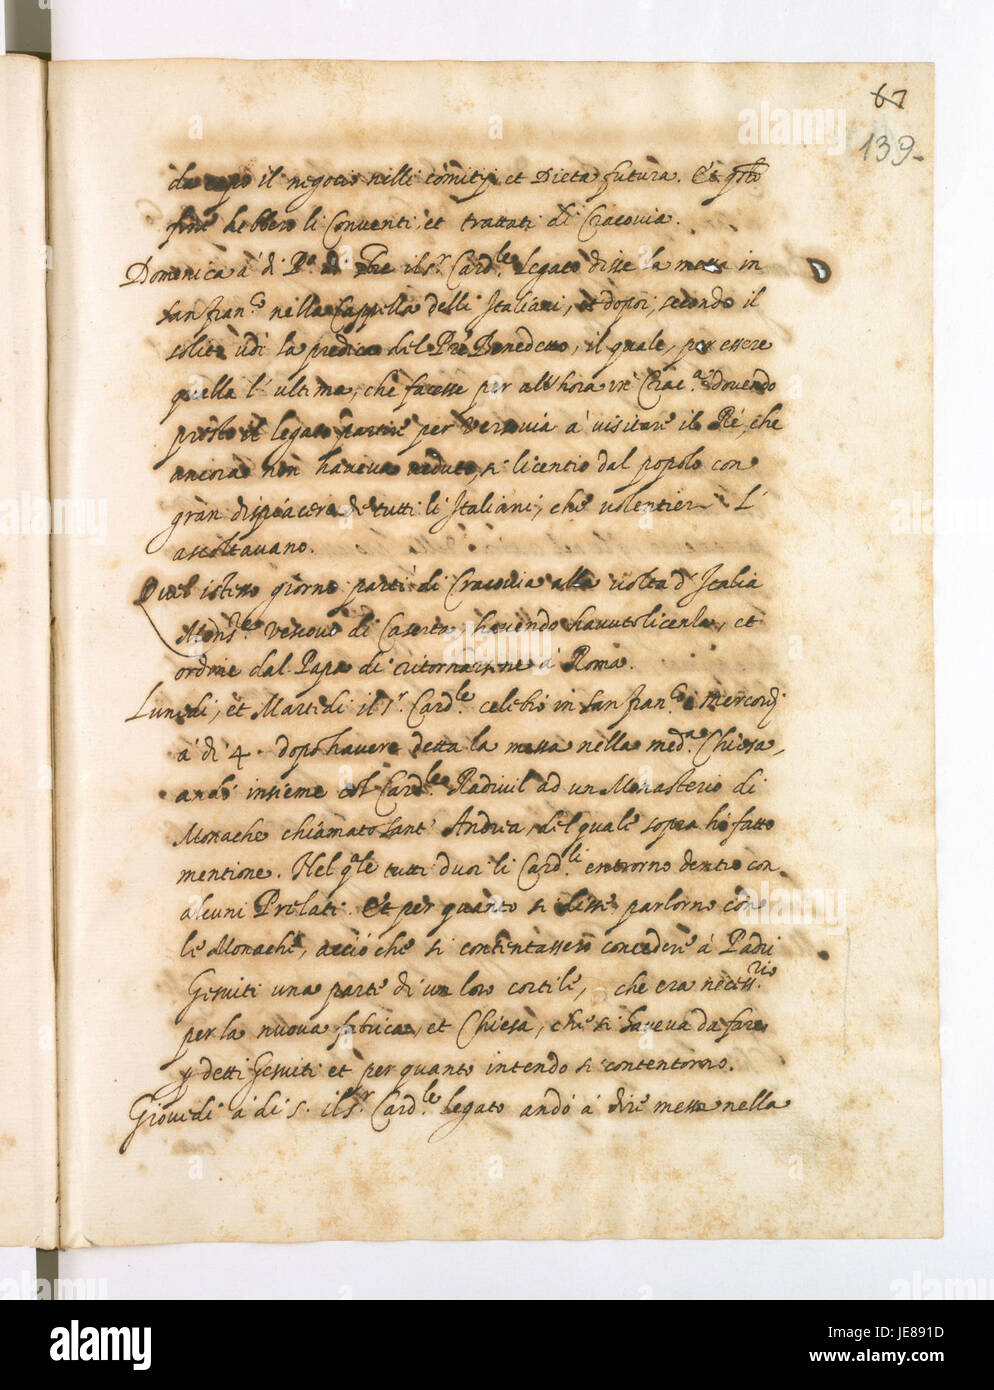 67
139.
il negocio nelli comitij et Dieta futura. Et q.sto
fine hebbero li Conventi, et trattati di Cracovia.
Domenica à di P.a il s.r Card.le Legato disse la messa in
san fran.co nella Cappella delli Italiani, et dopoi, secondo il
solito udì la predica del Pre Benedetto, il quale, per essere
quella l'ultima, che facesse per all'hora in Crac.a dovendo
presto il legato partire per Versovia à visitare il Ré, che
ancora non haveva veduto, si licentiò dal popolo con
gran dispiacere de tutti li Italiani, che volentieri L'
ascoltavano.
Quel istesso giorno partì di Cracovia alla volta d'Italia
Mons.re Vescovo di Caserta, havendo havuto licenza, et
ordine dal Papa di ritornarsene à Roma.
Lunedi, et Martedi il s.r Card.le celebrò in san fran.co Mercordj
à di 4. dopo havere detta la messa nella med.a Chiesa,
andò insieme col Card.le Radivil ad un Monasterio di
Monache chiamato Sant' Andrea, del quale sopra hò fatto
mentione. Nel q.le tutti duoi li Card.li entrorno dentro con
alcuni Prelati. Et per quanto si disse parlorno con
le Monache, acciò che si contentassero concedere à Padri
Gesuiti una parte di un loro cortile, che era necess.rio
per la nuova fabrica, et Chiesa, che si haveva da fare
p detti Gesuiti et per quanto intendo si contentorno.
Giovedi à di 5. il s.r Card.le Legato andò à dire messa nella
alamy
JE891D
www.alamy.com